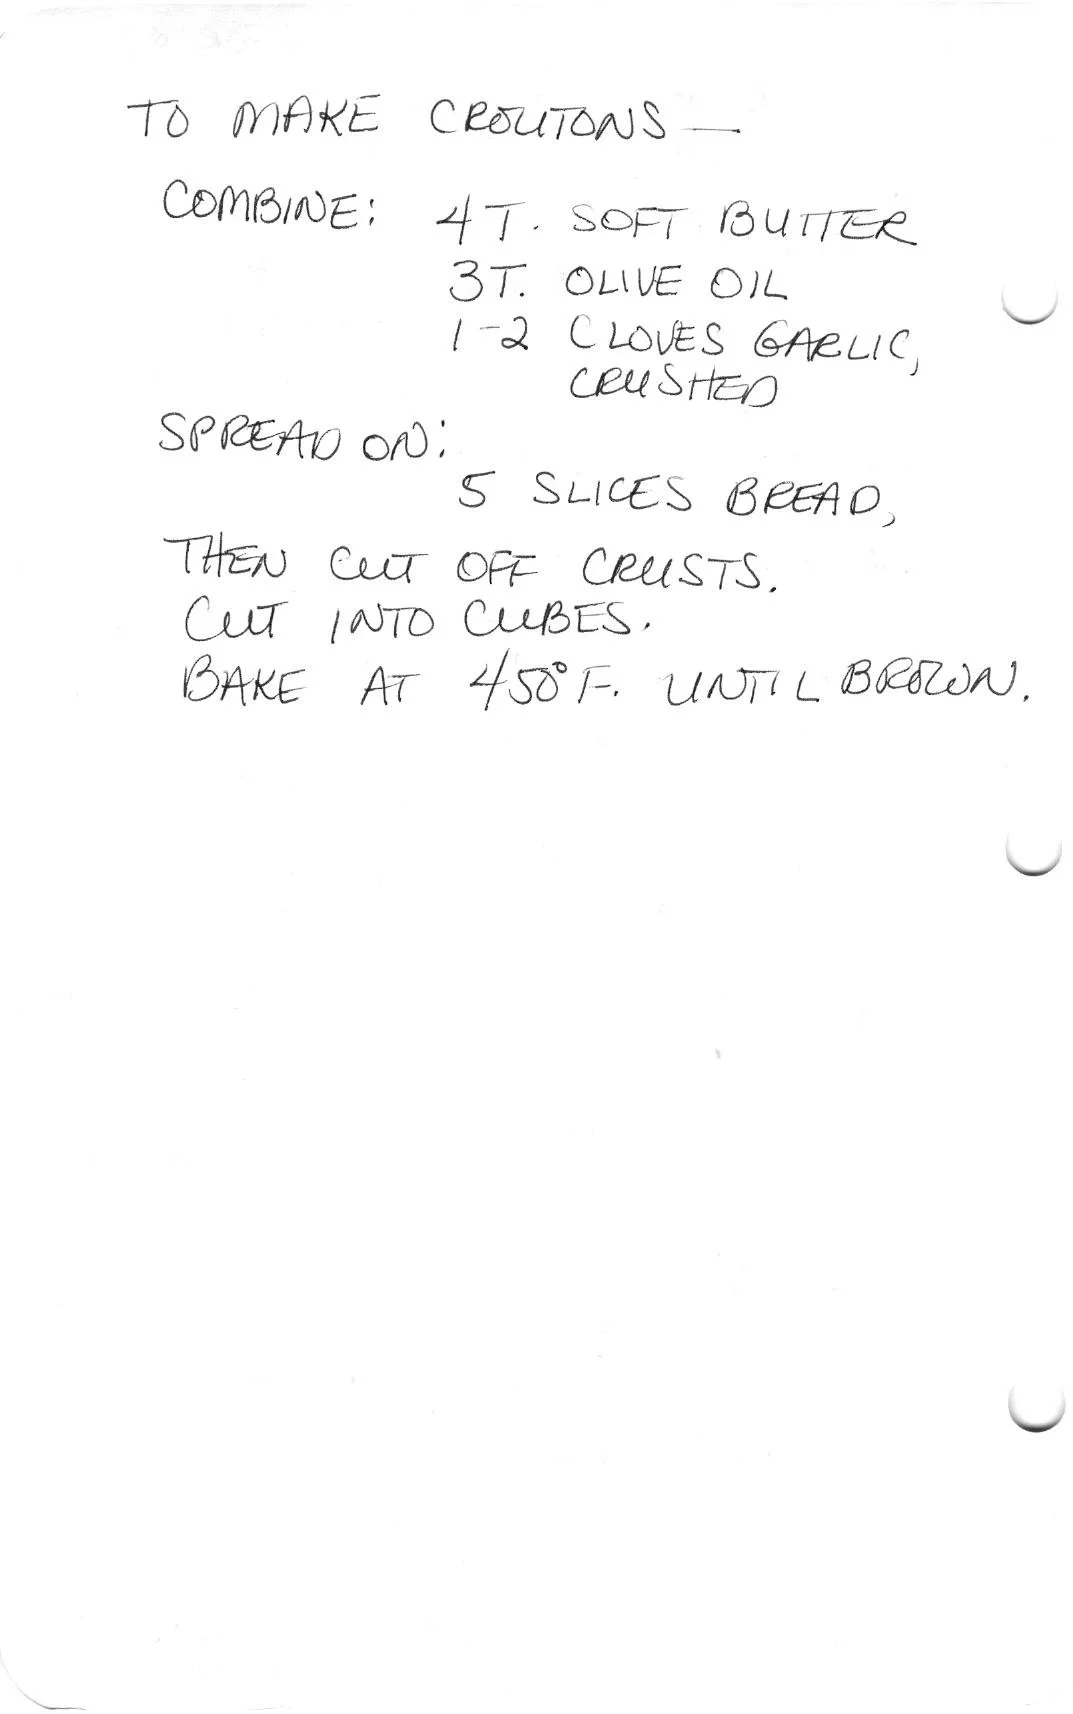 TO MAKE CROUTONS —
COMBINE: 4 T. SOFT BUTTER
3 T. OLIVE OIL
1-2 CLOVES GARLIC,
CRUSHED
SPREAD ON:
5 SLICES BREAD,
THEN CUT OFF CRUSTS.
CUT INTO CUBES.
BAKE AT 450° F. UNTIL BROWN.